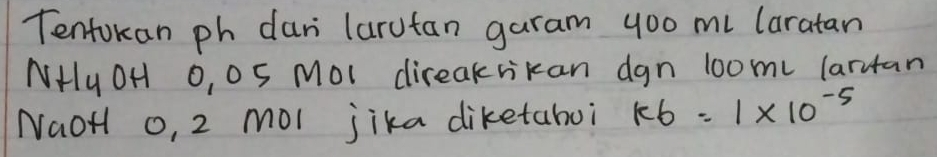 Tentukan ph dari larutan garam 400 ml laratan
NH4OH 0,05 Mol direaksikan dgn 100 ml larutan
NaOH 0,2 mol jika diketahui kb = 1 x 10⁻⁵